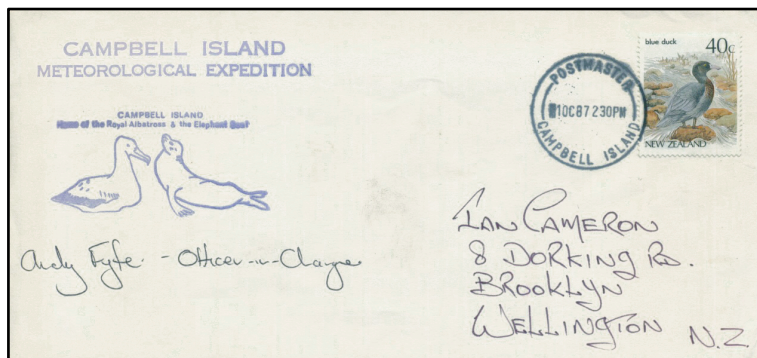 CAMPBELL ISLAND
METEOROLOGICAL EXPEDITION
CAMPBELL ISLAND
Home of the Royal Albatross & the Elephant Seal
Andy Fyfe - Officer-in-Charge
POSTMASTER
1DC87230PM
CAMPBELL ISLAND
blue duck
40c
NEW ZEALAND
IAN CAMERON
8 DORKING RD.
BROOKLYN
WELLINGTON N.Z